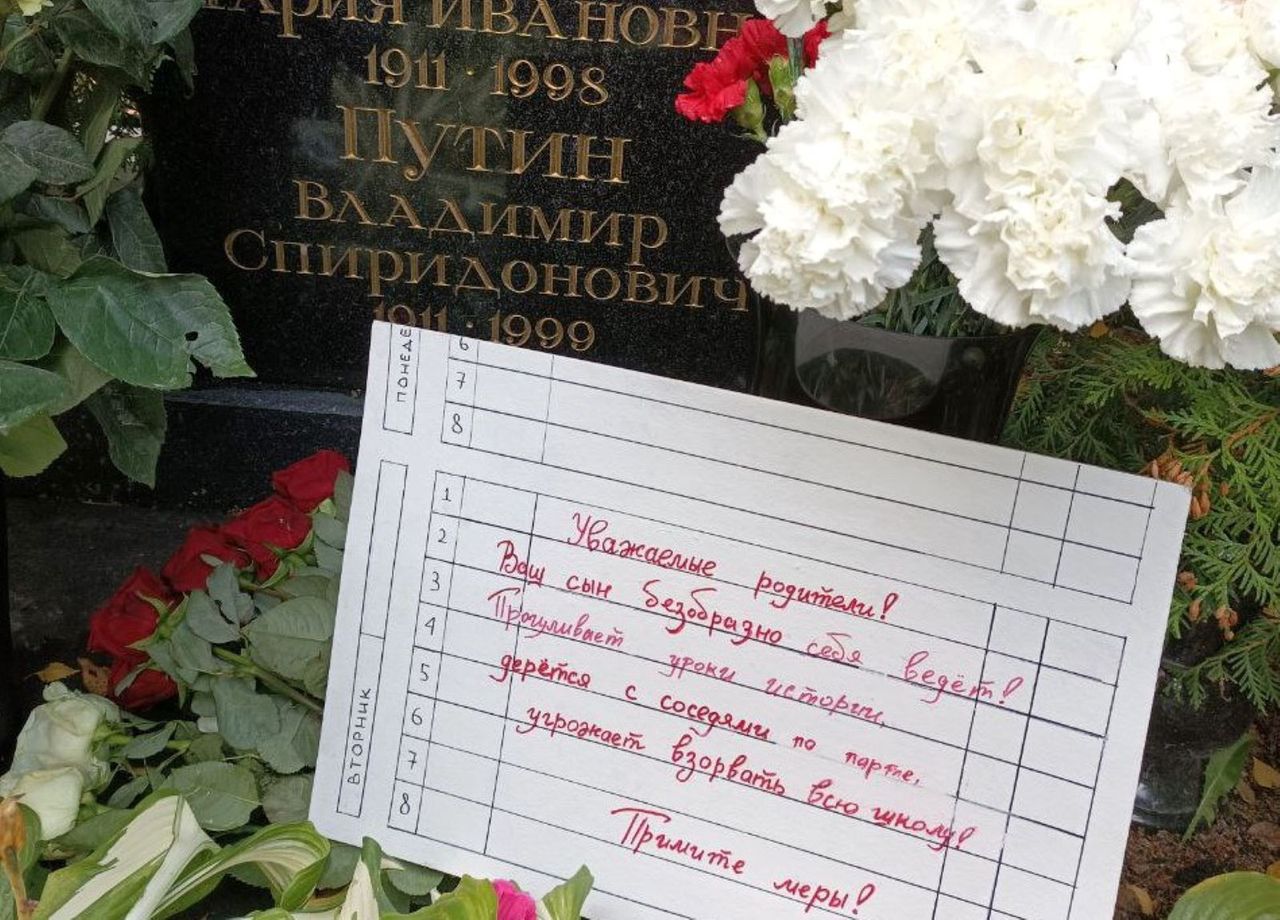 АРИЯ ИВАНОВН
1911 · 1998
ПУТИН
ВЛАДИМИР
СПИРИДОНОВИЧ
1911 · 1999
ПОНЕДЕ
6
7
8
ВТОРНИК
1
2
3
4
5
6
7
8
Уважаемые родители!
Ваш сын безобразно себя ведёт!
Прогуливает уроки истории,
дерётся с соседями по парте,
угрожает взорвать всю школу!
Примите меры!